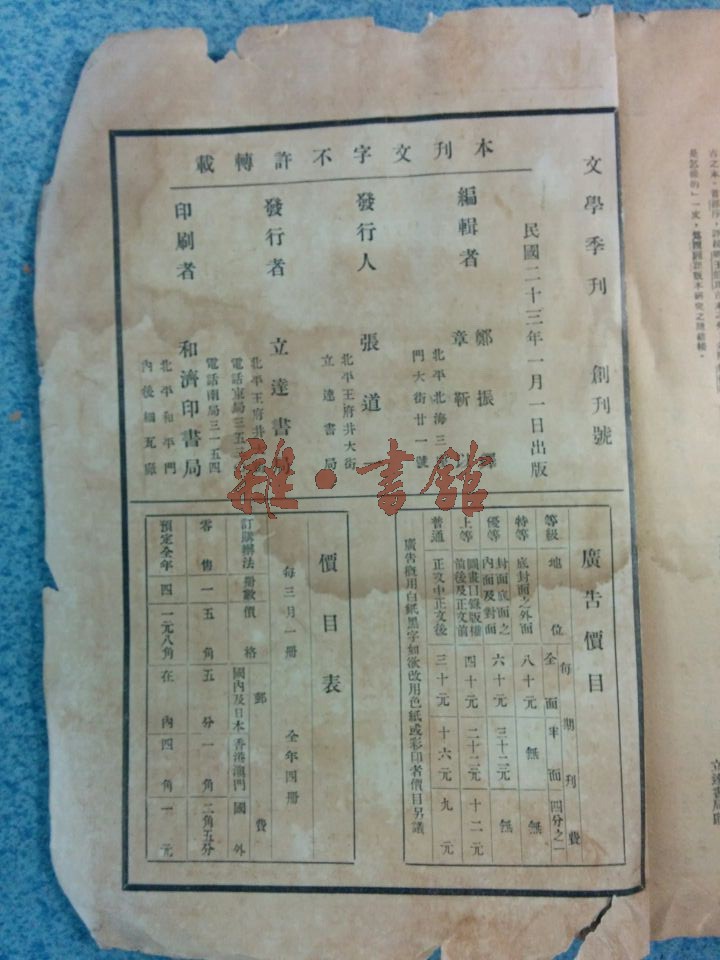 文學季刊 創刊號
民國二十三年一月一日出版
本刊文字不許轉載
編輯者
鄭振鐸
章靳以
北平北海三座
門大街廿一號
發行人
張道
北平王府井大街
立達書局
發行者
立達書局
北平王府井大街
電話東局三五三
印刷者
和濟印書局
電話南局三一五四
北平和平門
內後細瓦廠
廣告價目
等級 地位 每期刊費
全面 半面 四分之一
特等 底封面之外面 八十元 無 無
優等 封面底面之內面及對面 六十元 三十二元 無
上等 圖畫目錄版權前後及正文前 四十元 二十二元 十二元
普通 正文中正文後 三十元 十六元 九元
廣告概用白紙黑字如欲改用色紙或彩印者價目另議
價目表
每三月一冊 全年四冊
訂購辦法 冊數 價格 郵費
國內及日本 香港澳門 國外
零售 一 五角 五分 一角 二角五分
預定全年 四 一元八角 在內 四角 一元
雜·書館
是怎樣的」一文,